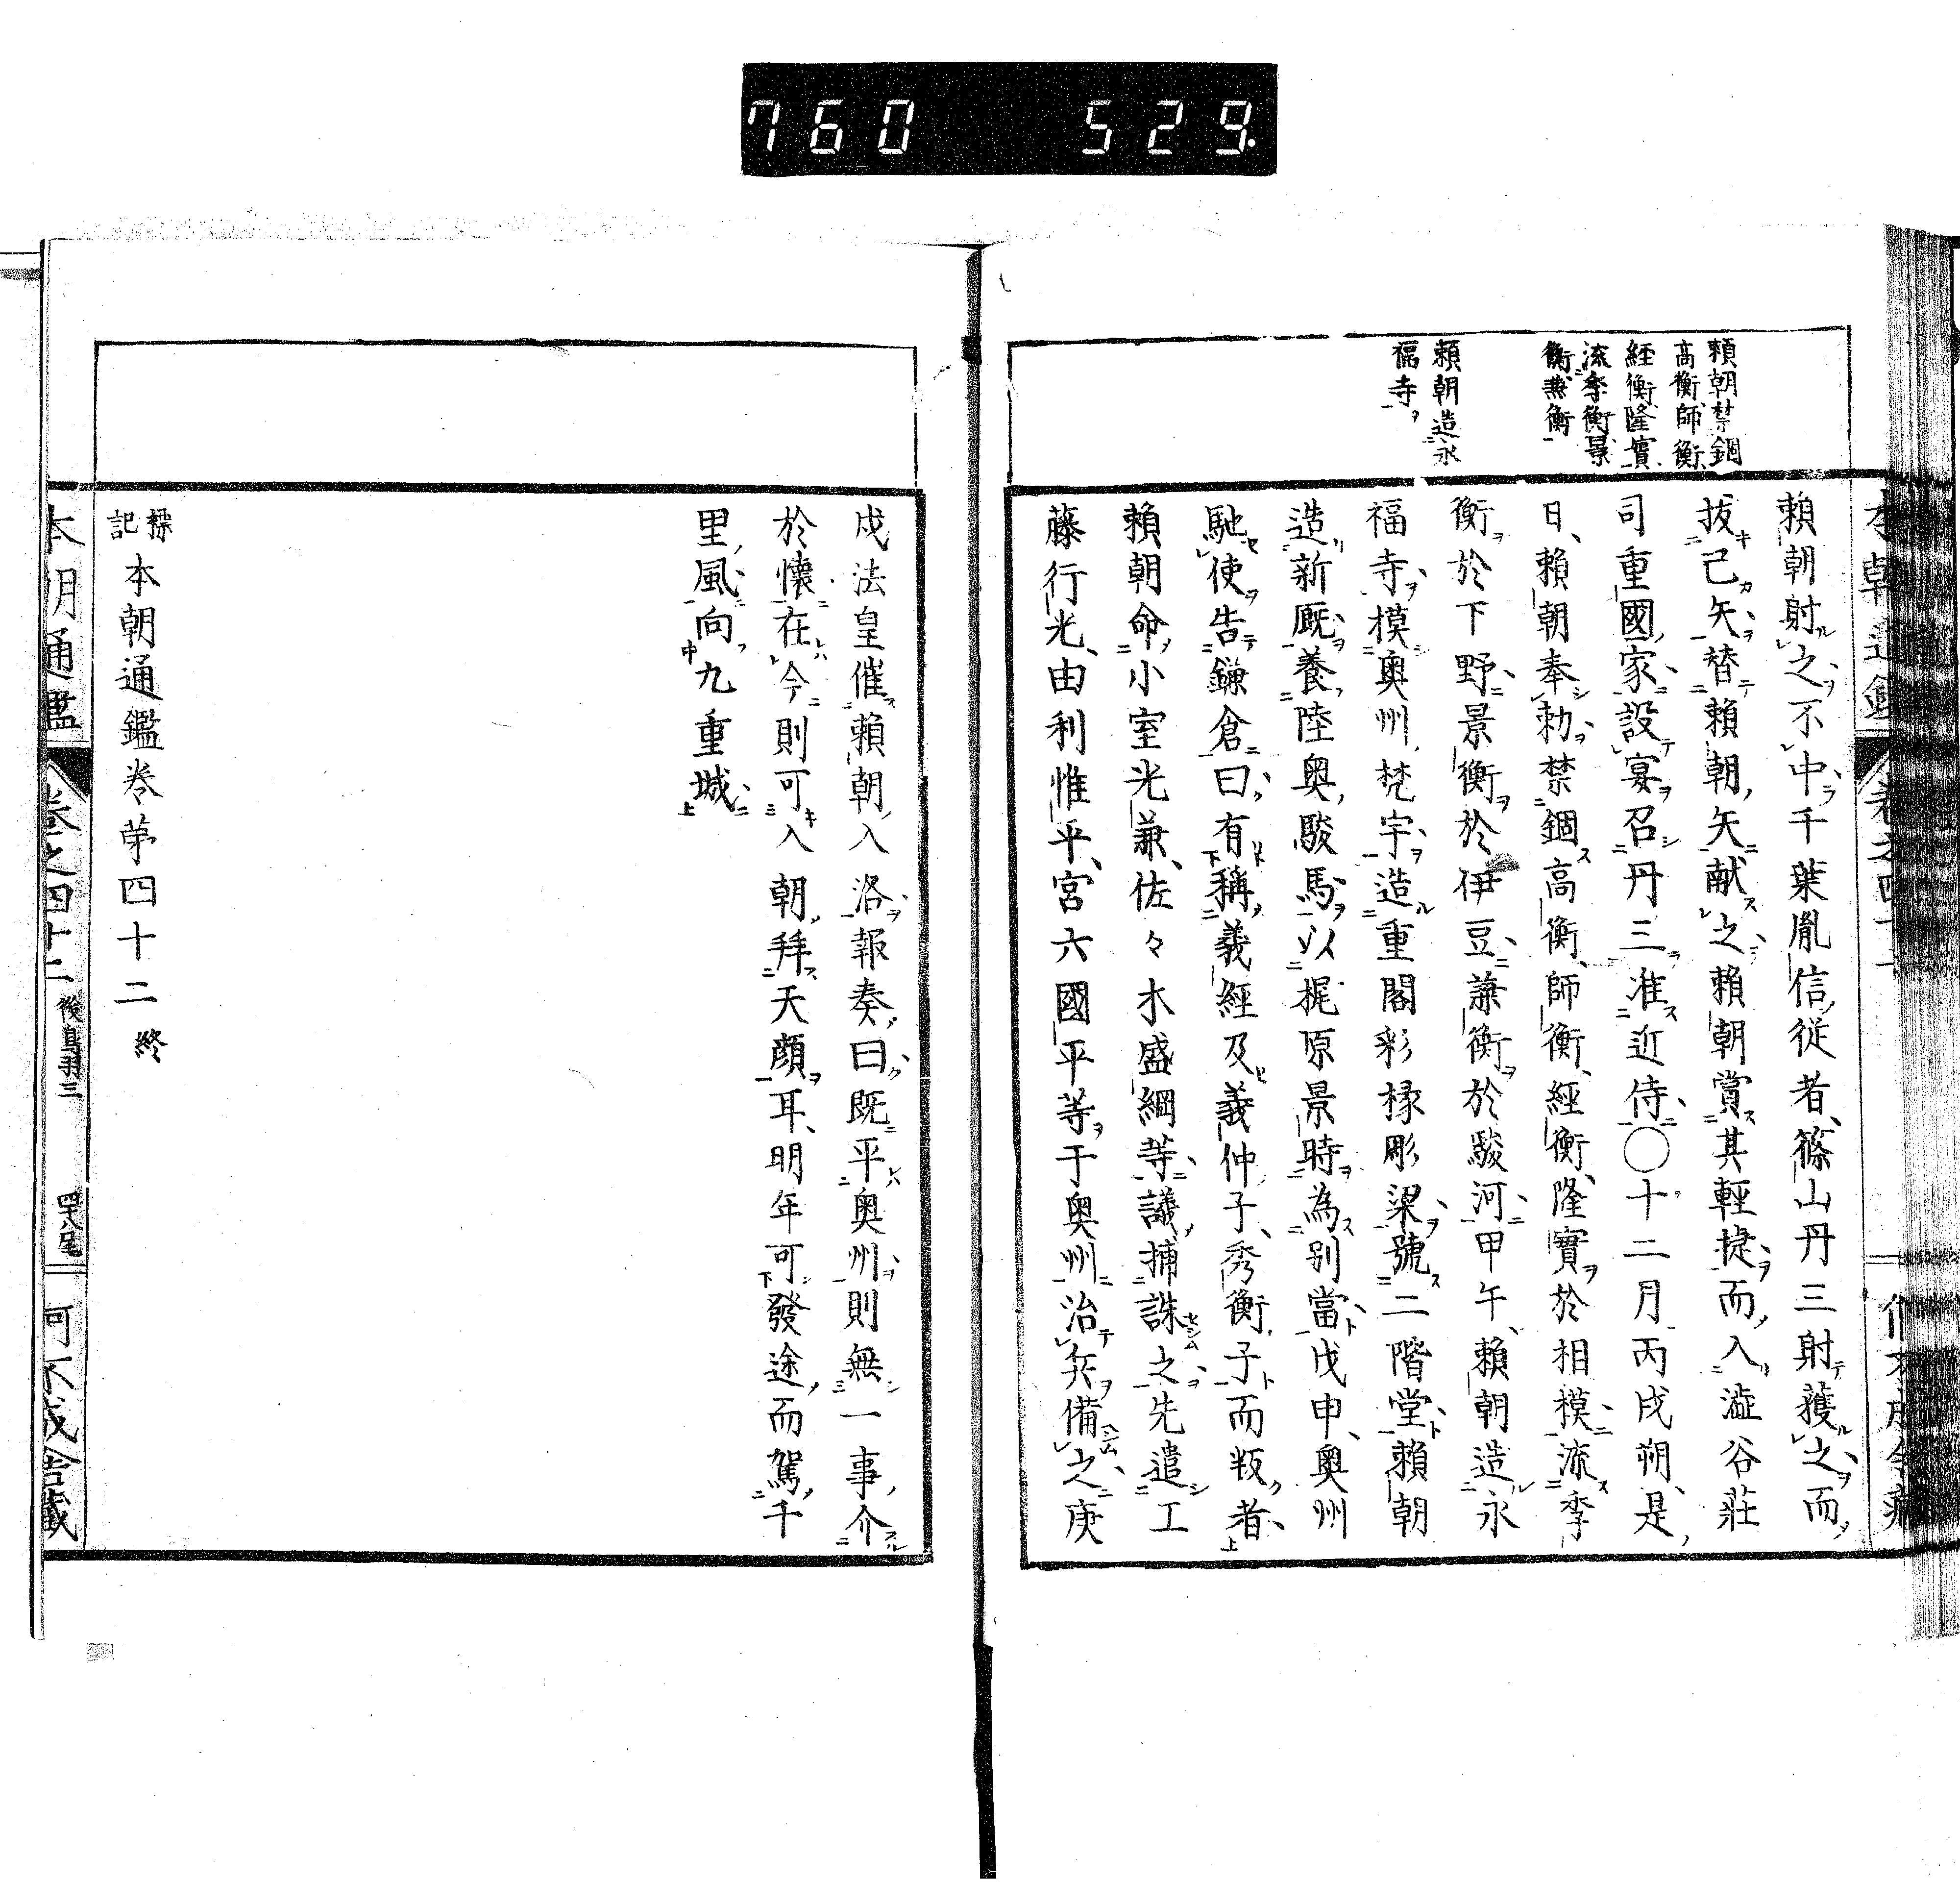 760 529.
賴朝禁錮
高衡師衡
經衡隆實
流季衡景
衡兼衡
賴朝造永
福寺
賴朝射之不中千葉胤信從者篠山丹三射獲之而
拔己矢替賴朝矢献之賴朝賞其輕捷而入澁谷莊
司重國家設宴召丹三准近侍○十二月丙戌朔是
日賴朝奉勅禁錮高衡師衡經衡隆實於相模流季
衡於下野景衡於伊豆兼衡於駿河甲午賴朝造永
福寺摸奥州梵宇造重閣彩椽彫梁號二階堂賴朝
造新厩養陸奥駿馬以梶原景時為別當戊申奥州
馳使告鎌倉曰有稱義經及義仲子秀衡子而叛者
賴朝命小室光兼佐々木盛綱等議捕誅之先遣工
藤行光由利惟平宮六國平等于奥州治兵備之庚
戌法皇催賴朝入洛報奏曰既平奥州則無一事介
於懷在今則可入朝拜天顔耳明年可發途而駕千
里風向九重城
標記 本朝通鑑卷第四十二終
本朝通鑑 卷之四十二 後鳥羽三 四十八尾 何不成舍藏